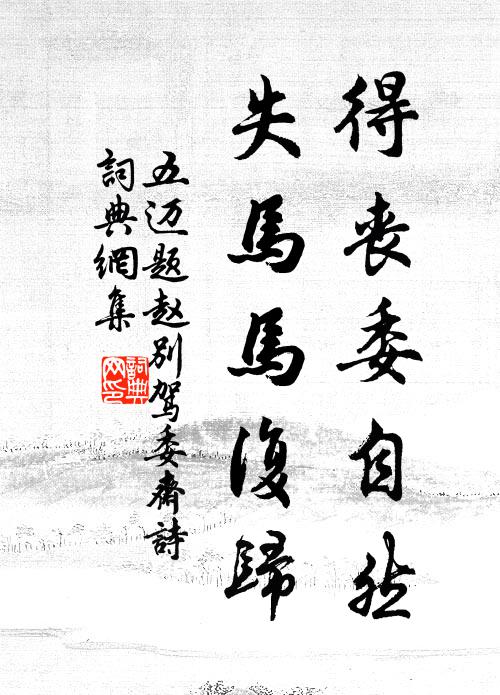 得喪委自然
失馬馬復歸
五迈题赵别駕委齋詩
詞典網集
詞典網印